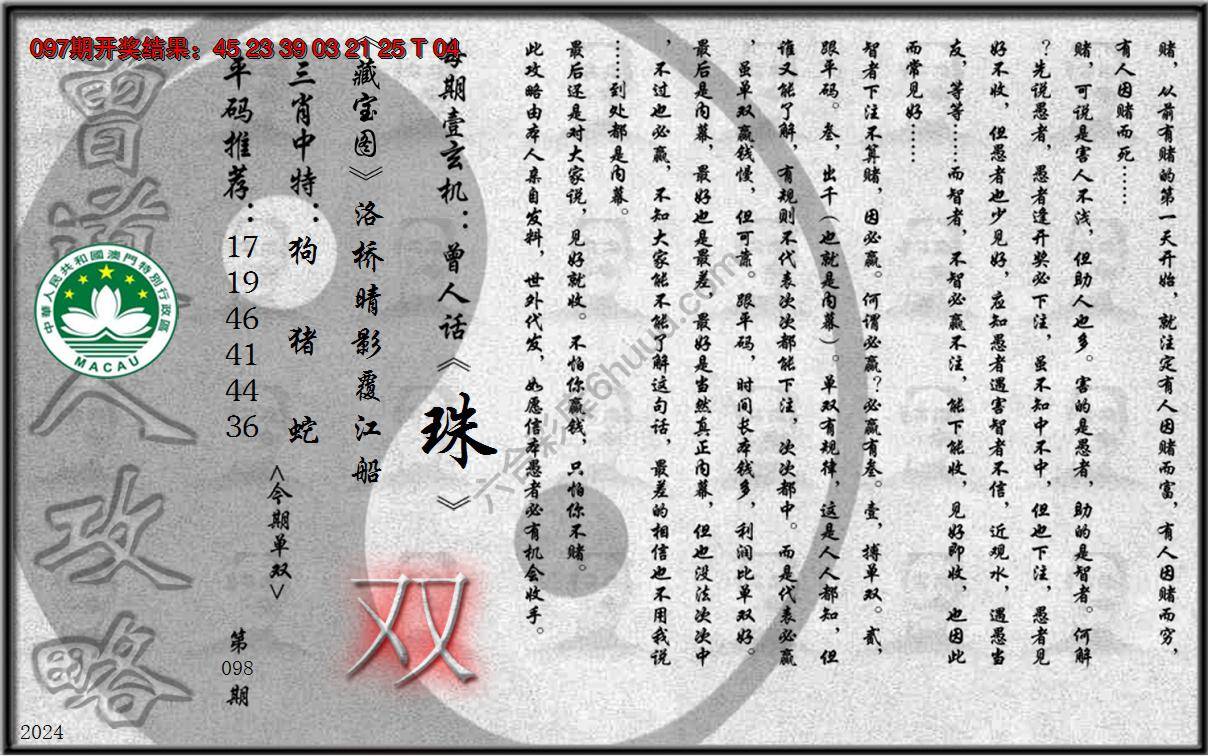 097期开奖结果：45 23 39 03 21 25 T 04
赌，从前有赌的第一天开始，就注定有人因赌而富，有人因赌而穷，
有人因赌而死……
赌，可说是害人不浅，但助人也多。害的是愚者，助的是智者。何解
？先说愚者，愚者逢开奖必下注，虽不知中不中，但也下注，愚者见
好不收，但愚者也少见好，应知愚者遇害智者不信，近观水，遇愚当
友，等等……而智者，不智必赢不注，能下能收，见好即收，也因此
而常见好……
智者下注不算赌，因必赢。何谓必赢？必赢有叁。壹，搏单双。贰，
跟平码。叁，出千（也就是内幕）。单双有规律，这是人人都知，但
谁又能了解，有规则不代表次次都能下注，次次都中。而是代表必赢
，虽单双赢钱慢，但可靠。跟平码，时间长本钱多，利润比单双好。
最后是内幕，最好也是最差，最好是当然真正内幕，但也没法次次中
，不过也必赢，不知大家能不能了解这句话，最差的相信也不用我说
……到处都是内幕。
最后还是对大家说，见好就收。不怕你赢钱，只怕你不赌。
此攻略由本人亲自发料，世外代发，如愿信本愚者必有机会收手。
每期壹玄机：曾人话《珠》
《藏宝图》洛桥晴影覆江船
三肖中特：狗 猪 蛇
平码推荐：17 19 46 41 44 36
<今期单双>
双
第098期
曾道人攻略
中華人民共和國澳門特別行政區
MACAU
2024